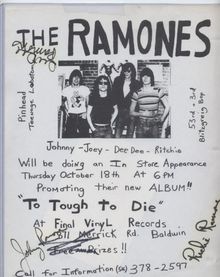 THE RAMONES
Johnny
Pinhead
Teenage Lobotomy
53rd - 3rd
Blitzkrieg Bop
Johnny - Joey - Dee Dee - Ritchie
Will be doing an In Store Appearance
Thursday October 18th At 6 PM
Promoting their new ALBUM!!
"To Tough to Die"
At Final Vinyl Records
1871 Merrick Rd. Baldwin
Free Prizes!!
Call for Information (516) 378-2597
Richie Ramone